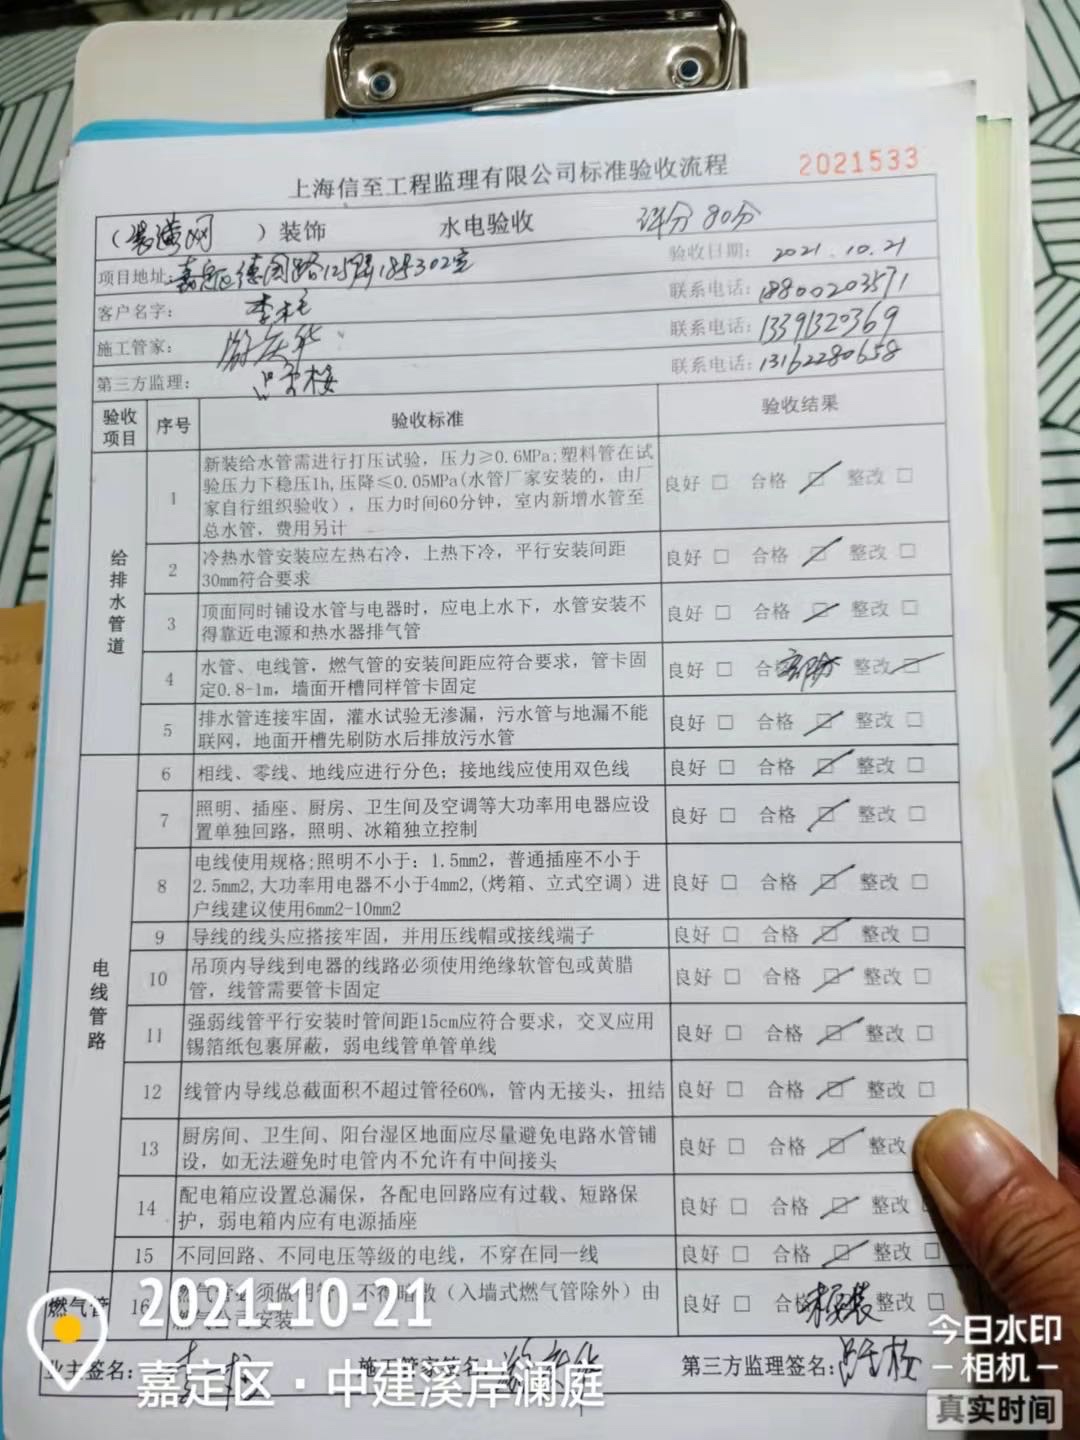 上海信至工程监理有限公司标准验收流程 2021533
（装潢网 ）装饰 水电验收 评分80分
项目地址: 嘉定区德园路125弄18号302室 验收日期: 2021.10.21
客户名字: 李 联系电话: 18800203571
施工管家: 联系电话: 13391320369
第三方监理: 联系电话: 13162280658
验收项目 序号 验收标准 验收结果
给排水管道
1 新装给水管需进行打压试验，压力≥0.6MPa;塑料管在试
验压力下稳压1h,压降≤0.05MPa(水管厂家安装的，由厂
家自行组织验收），压力时间60分钟，室内新增水管至
总水管，费用另计
良好 □ 合格 □ 整改 □
2 冷热水管安装应左热右冷，上热下冷，平行安装间距
30mm符合要求
良好 □ 合格 □ 整改 □
3 顶面同时铺设水管与电器时，应电上水下，水管安装不
得靠近电源和热水器排气管
良好 □ 合格 □ 整改 □
4 水管、电线管，燃气管的安装间距应符合要求，管卡固
定0.8-1m，墙面开槽同样管卡固定
良好 □ 合 部分 整改 □
5 排水管连接牢固，灌水试验无渗漏，污水管与地漏不能
联网，地面开槽先刷防水后排放污水管
良好 □ 合格 □ 整改 □
电线管路
6 相线、零线、地线应进行分色；接地线应使用双色线
良好 □ 合格 □ 整改 □
7 照明、插座、厨房、卫生间及空调等大功率用电器应设
置单独回路，照明、冰箱独立控制
良好 □ 合格 □ 整改 □
8 电线使用规格;照明不小于：1.5mm2，普通插座不小于
2.5mm2,大功率用电器不小于4mm2,(烤箱、立式空调）进
户线建议使用6mm2-10mm2
良好 □ 合格 □ 整改 □
9 导线的线头应搭接牢固，并用压线帽或接线端子
良好 □ 合格 □ 整改 □
10 吊顶内导线到电器的线路必须使用绝缘软管包或黄腊
管，线管需要管卡固定
良好 □ 合格 □ 整改 □
11 强弱线管平行安装时管间距15cm应符合要求，交叉应用
锡箔纸包裹屏蔽，弱电线管单管单线
良好 □ 合格 □ 整改 □
12 线管内导线总截面积不超过管径60%，管内无接头，扭结
良好 □ 合格 □ 整改 □
13 厨房间、卫生间、阳台湿区地面应尽量避免电路水管铺
设，如无法避免时电管内不允许有中间接头
良好 □ 合格 □ 整改
14 配电箱应设置总漏保，各配电回路应有过载、短路保
护，弱电箱内应有电源插座
良好 □ 合格 □ 整改
15 不同回路、不同电压等级的电线，不穿在同一线
良好 □ 合格 □ 整改 □
燃气管
16 燃气管必须做明管，不得暗敷（入墙式燃气管除外）由
燃气公司安装
良好 □ 合 未安装 整改 □
业主签名: 施工管家签名: 第三方监理签名:
2021-10-21
嘉定区·中建溪岸澜庭
今日水印
相机
真实时间